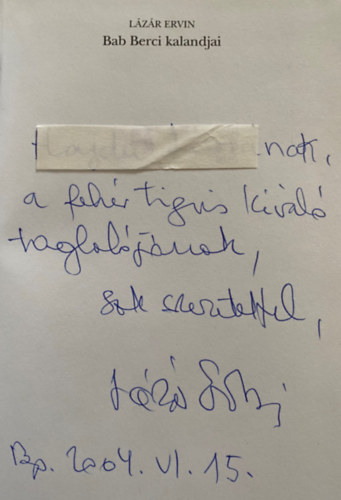 LÁZÁR ERVIN
Bab Berci kalandjai
nak,
a fehér tigris kiváló
vaglalójának,
sok szeretettel,
Lázár Ervin
Bp. 2004. VI. 15.